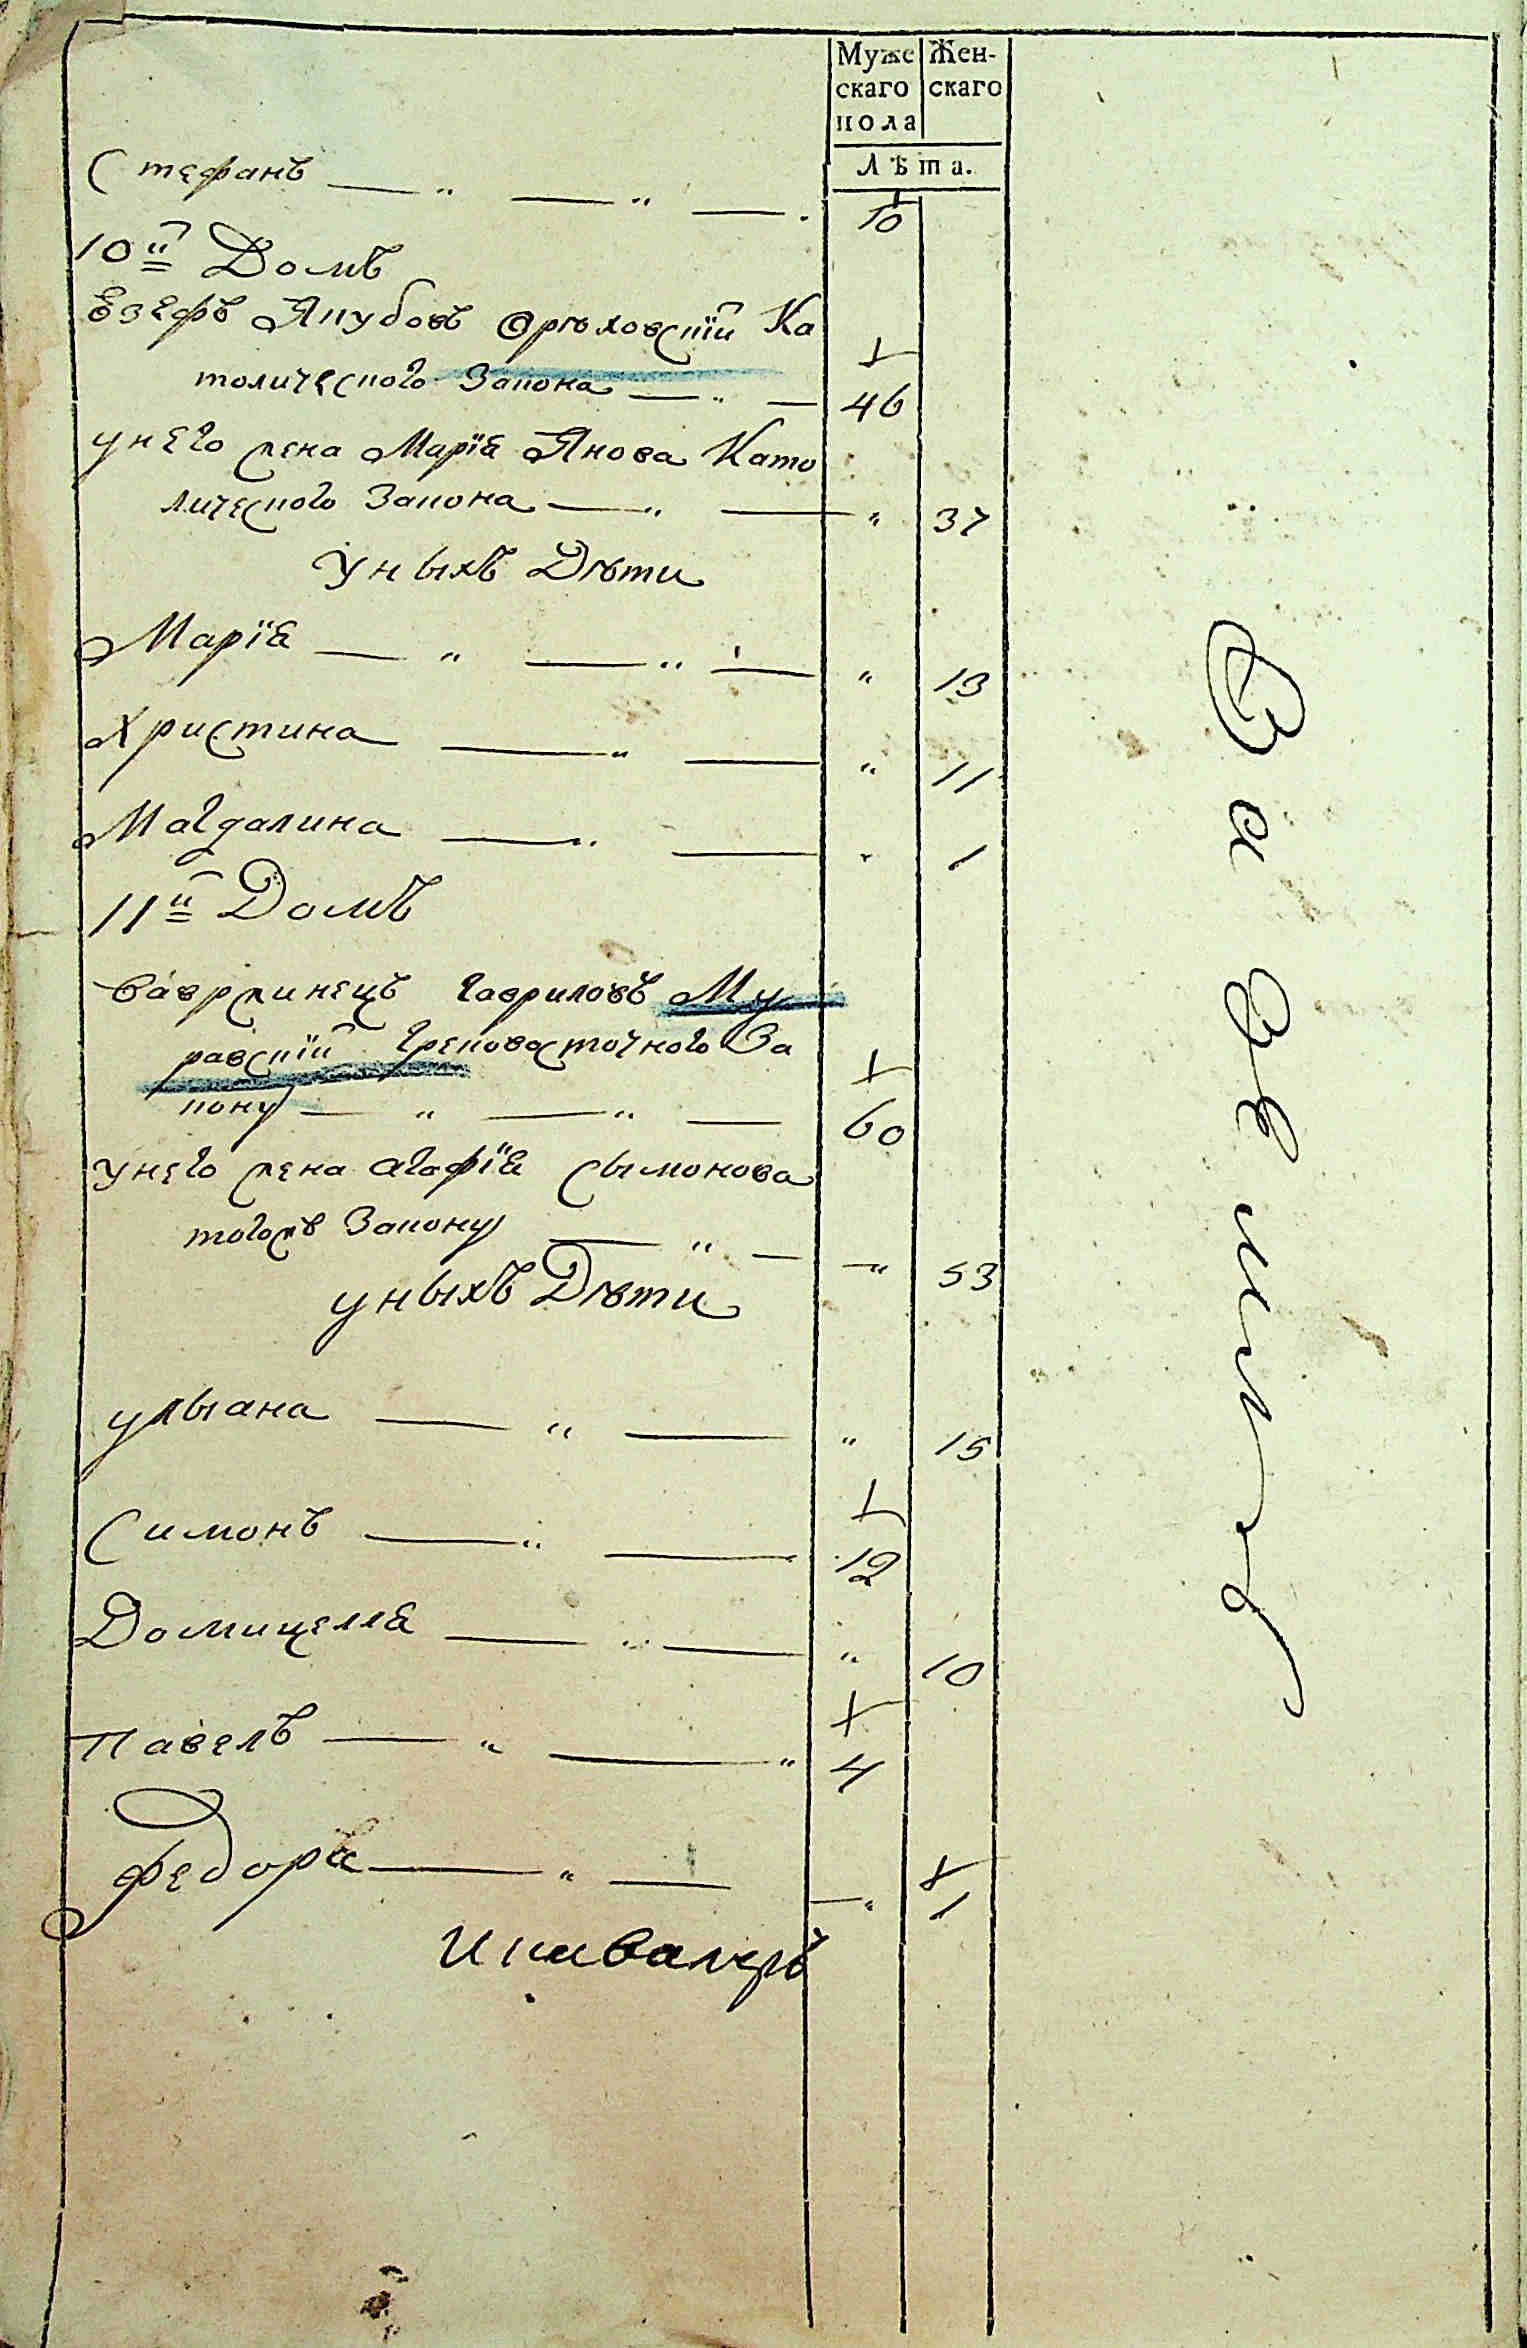 Муже Жен-
скаго скаго
пола
Лѣта.
Стефанъ — „ — „ — . 10
10й Домъ
Езефъ Якубовъ Орѣховскїй Ка
толического Закона — „ — 46
унего жена Марїя Янова Като
лического Закона — „ — „ 37
уныхъ Дѣти
Марїя — „ — „ — „ 13
Христина — „ — „ 11
Магдалина — „ — „ 1
11й Домъ
Вавржинецъ Гавриловъ Му
равскїй Грековосточного За
кону — „ — „ — 60
унего жена Агафїя Сымонова
тогожъ Закону — „ — „ 53
уныхъ Дѣти
ульяна — „ — „ 15
Симонъ — „ — 12
Домицеля — „ — „ 10
Павелъ — „ — „ 4
федора — „ — „ 1